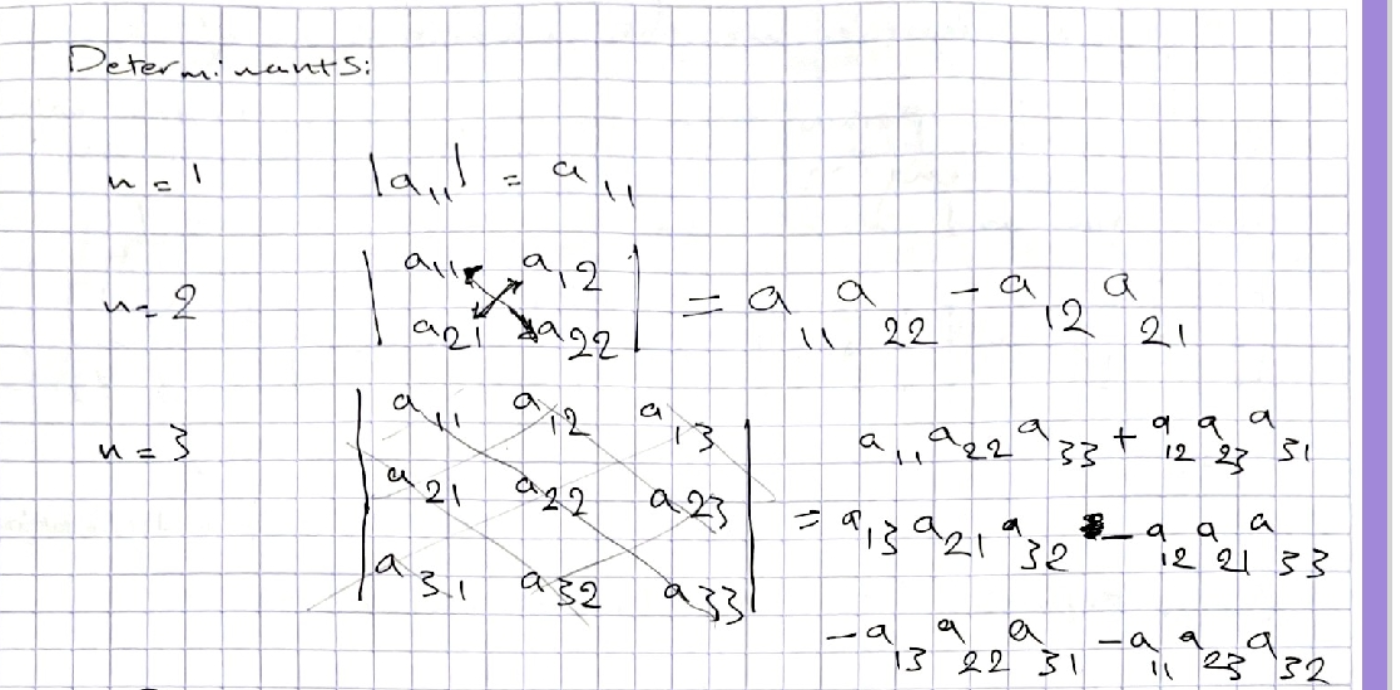 Determinants:
n = 1 |a₁₁| = a₁₁
n = 2 | a₁₁ a₁₂ | = a₁₁ a₂₂ - a₁₂ a₂₁
| a₂₁ a₂₂ |
n = 3 | a₁₁ a₁₂ a₁₃ | a₁₁ a₂₂ a₃₃ + a₁₂ a₂₃ a₃₁
| a₂₁ a₂₂ a₂₃ | = a₁₃ a₂₁ a₃₂ - a₁₂ a₂₁ a₃₃
| a₃₁ a₃₂ a₃₃ | - a₁₃ a₂₂ a₃₁ - a₁₁ a₂₃ a₃₂